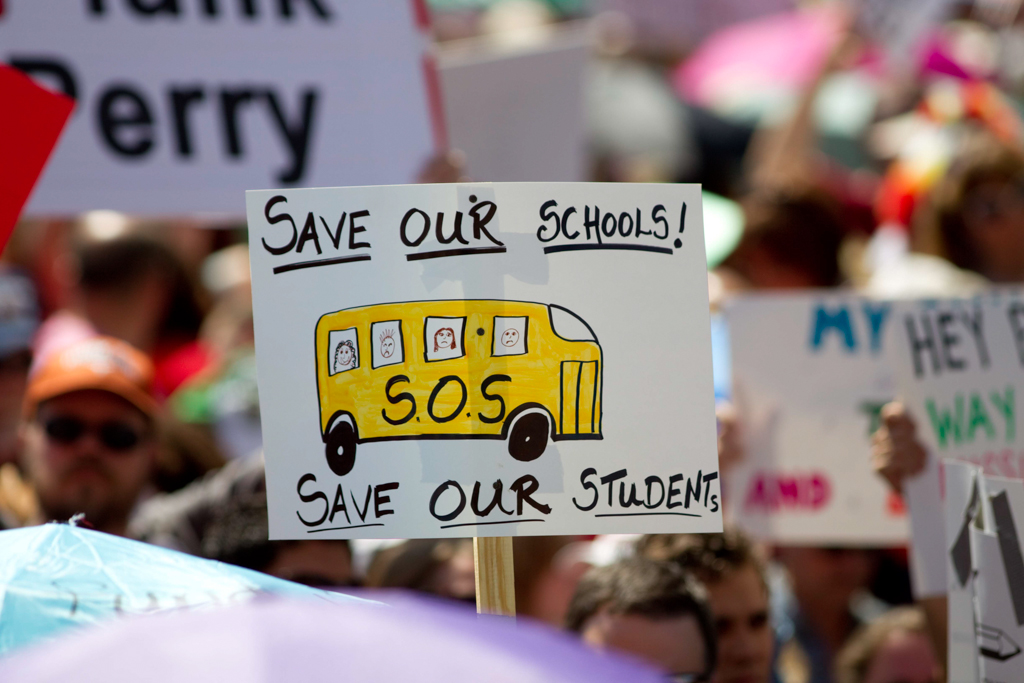 Perry
SAVE OUR SCHOOLS!
S.O.S
SAVE OUR STUDENTS
MY
HEY
WAY
AND